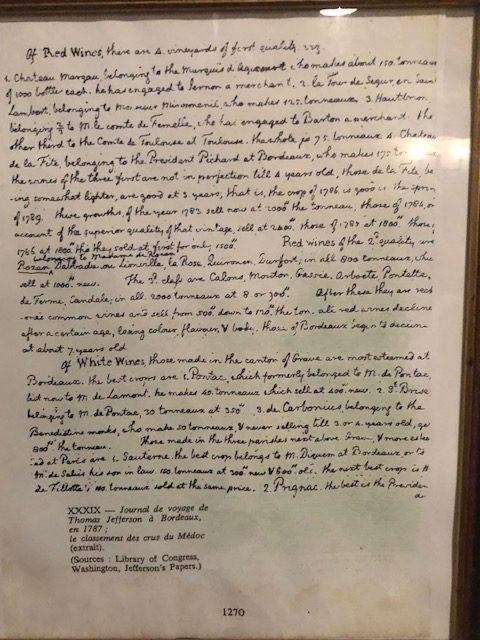 Of Red Wines, there are 4. vineyards of first quality. viz.
1. Chateau Margau, belonging to the Marquis d'Agicourt, who makes about 150. tonneaux
of 1000 bottles each. he has engaged to Jernon a merchant. 2. la Tour de Segur, en Saint
Lambert, belonging to Monsieur Miromenil, who makes 125. tonneaux. 3. Hautbrion,
belonging ⅔ to M. le comte de Femelle, who has engaged to Barton a merchant. the
other third to the Comte de Toulouse at Toulouse. the whole is 75. tonneaux. 4. Chateau
de la Fite, belonging to the President Pichard at Bordeaux, who makes 175 to
the wines of the three first are not in perfection till 4 years old, those de la Fite, be
-ing somewhat lighter, are good at 3. years, that is, the crop of 1786 is good in the spring
of 1789. these growths, of the year 1783 sell now at 2000.# the tonneau, those of 1784, on
account of the superior quality of that vintage, sell at 2400.# those of 1785 at 1800.# those of
1786 at 1800.# tho they sold at first for only 1500.# Red wines of the 2d. quality, are
belonging to Madame de Rozan
Rozan, Dabbadie ou Lionville, la Rose, Quirouen, Durfort; in all 800 tonneaux, which
sell at 1000.# new. The 3d. class are Calons, Mouton, Gassie, Arboete, Pontette,
de Terme, Candale; in all 2000 tonneaux at 8 or 900.# After these they are reck
-oned common wines and sell from 500.# down to 120.# the ton. all red wines decline
after a certain age, losing colour, flavour, & body. those of Bordeaux begin to decline
at about 7 years old.
Of White Wines, those made in the canton of Grave are most esteemed at
Bordeaux. the best crops are 1. Pontac, which formerly belonged to M. de Pontac,
but now to M. de Lamont. he makes 40. tonneaux which sell at 400.# new. 2. St. Brise
belonging to M. de Pontac, 30 tonneaux at 350.# 3. de Carbonius, belonging to the
Benedictine monks, who make 50 tonneaux, & never selling till 3 or 4 years old, get
800.# the tonneau. Those made in the three parishes next above Grave, & more es
ed at Paris are 1. Sauterne. the best crop belongs to M. Diquem at Bordeaux, or to
M. de Salus his son in law. 150. tonneaux at 300.# new & 600.# old. the next best crop is M.
de Fillotte's 100. tonneaux sold at the same price. 2. Prignac. the best is the President
du
XXXIX — Journal de voyage de
Thomas Jefferson à Bordeaux,
en 1787 ;
le classement des crus du Médoc
(extrait).
(Sources : Library of Congress,
Washington, Jefferson's Papers.)
1270